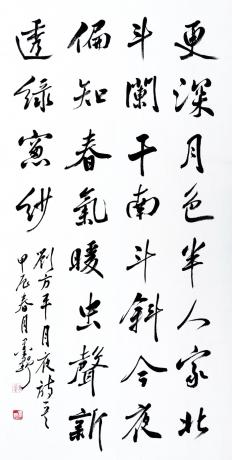 更深月色半人家北
斗闌干南斗斜今夜
偏知春氣暖虫聲新
透綠窻紗
劉方平月夜詩
甲辰春月